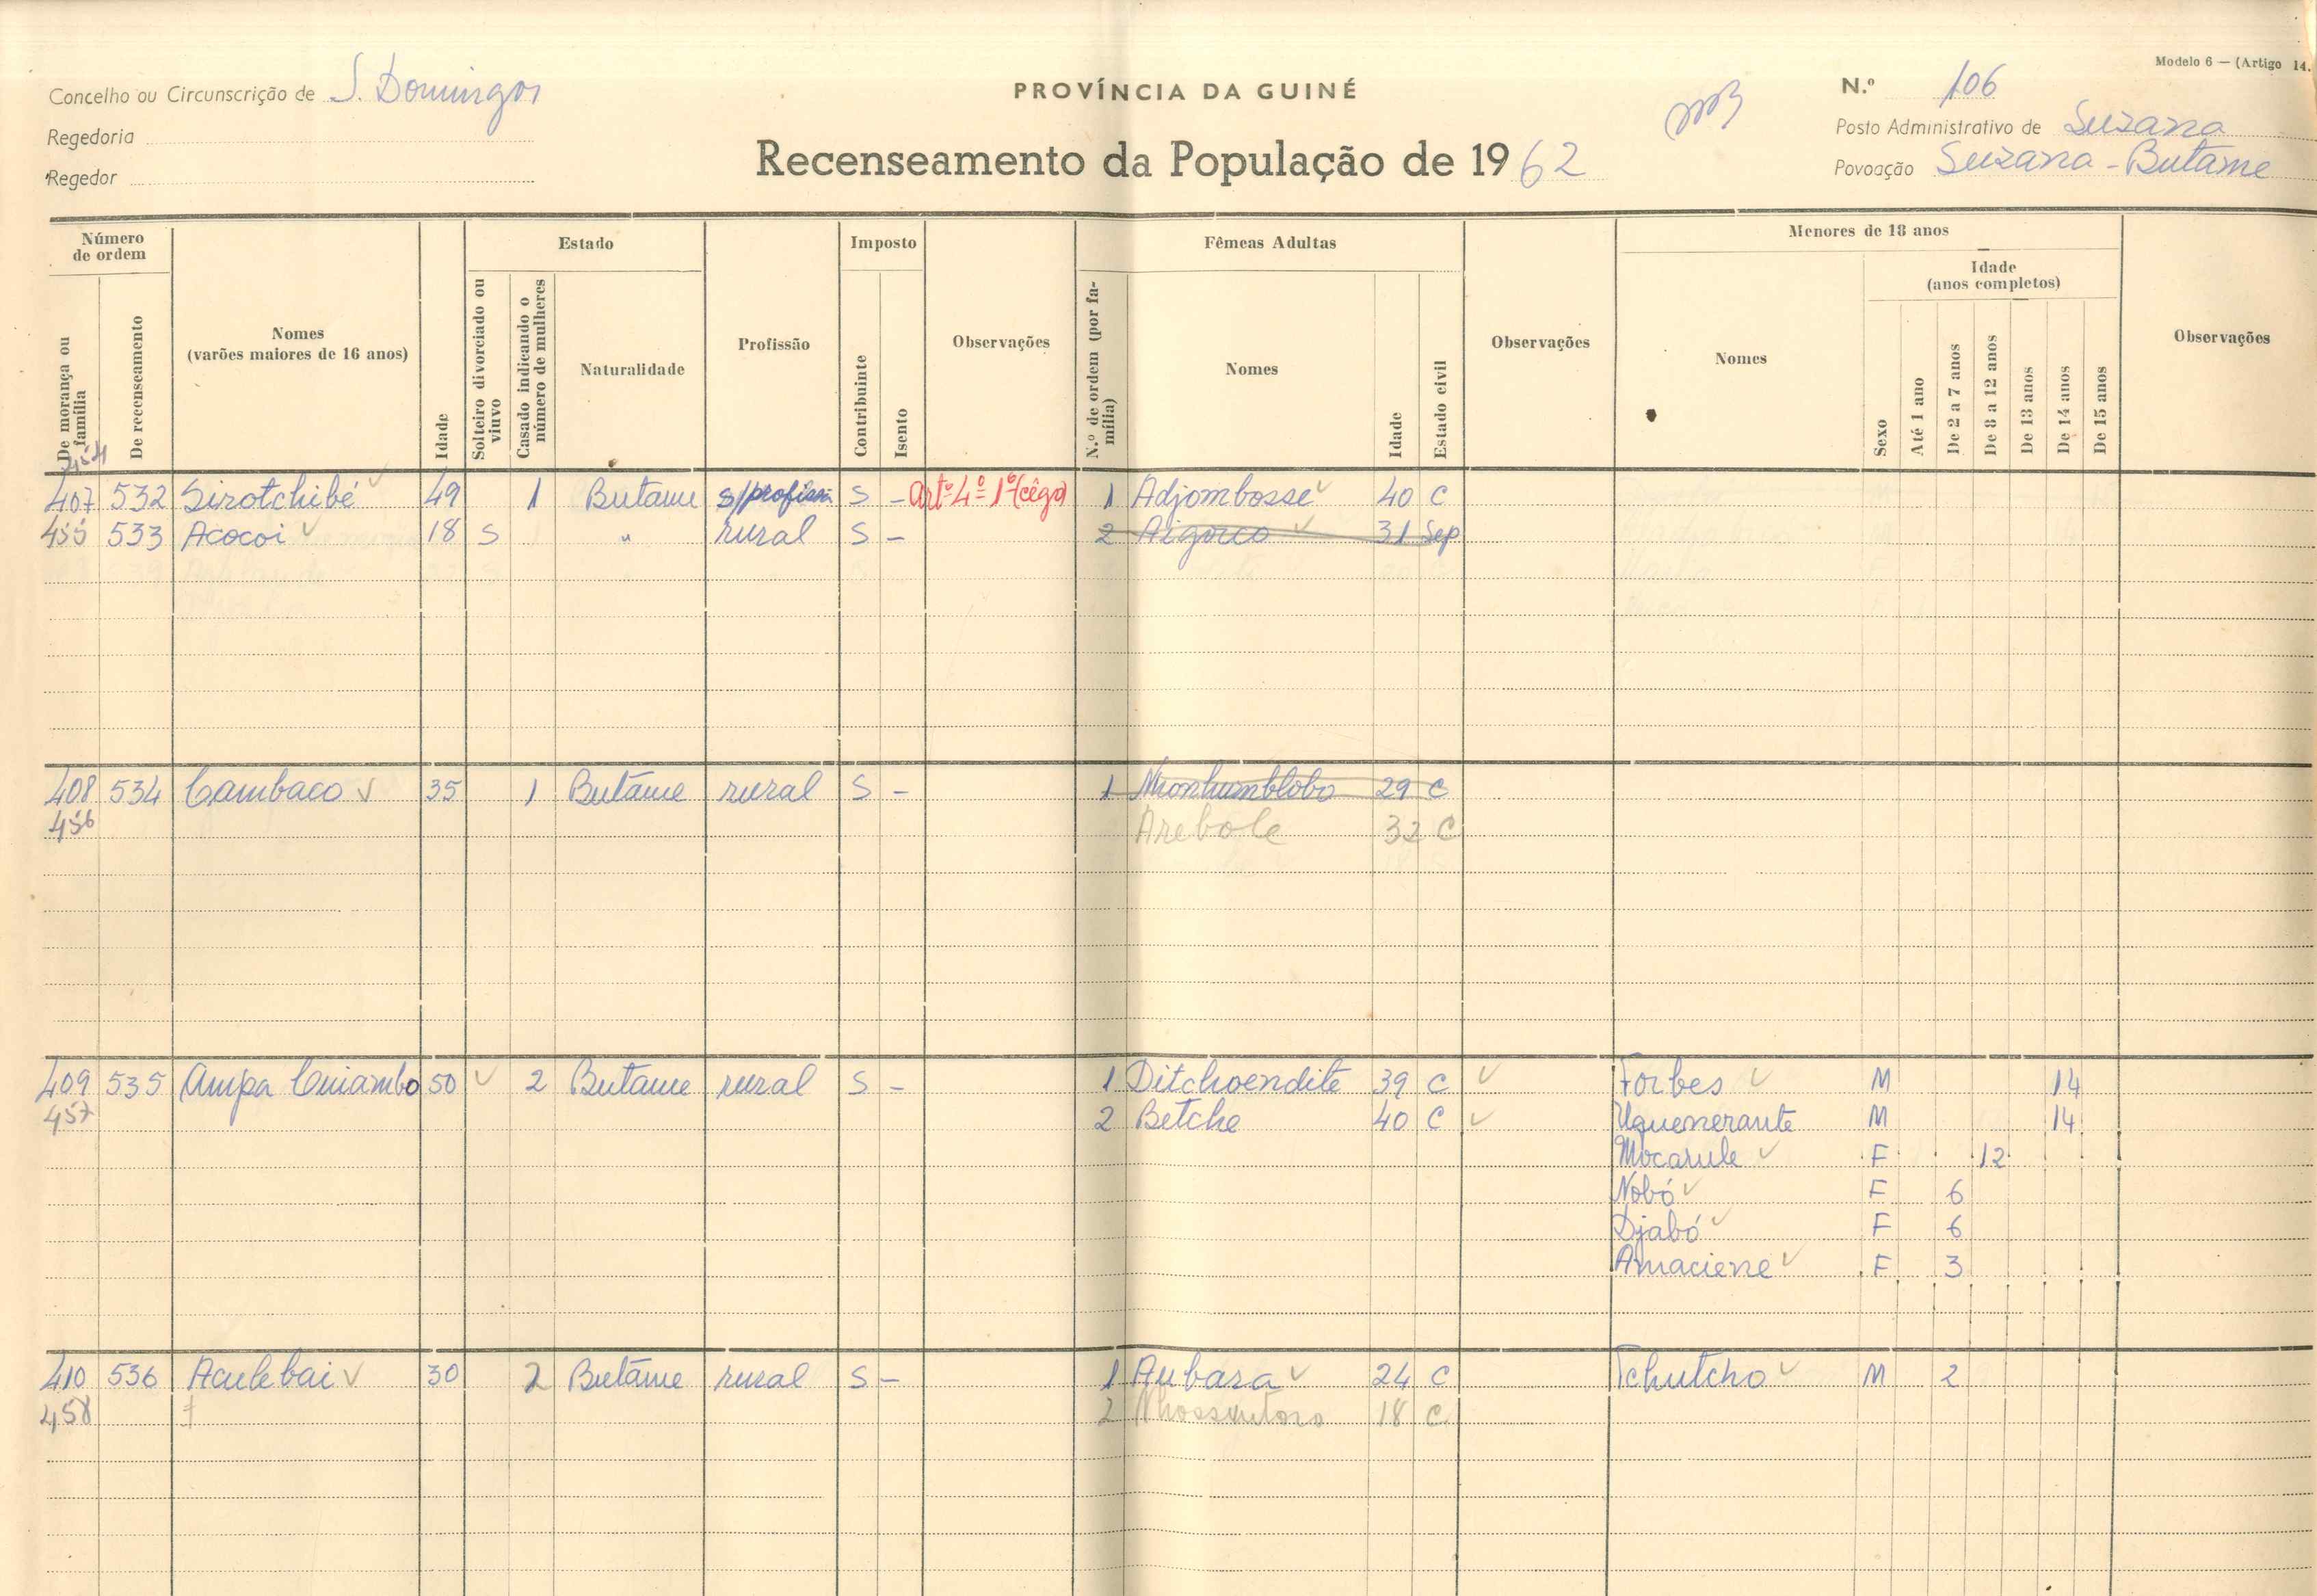 Modelo 6 — (Artigo 14.
Concelho ou Circunscrição de S. Domingos
PROVÍNCIA DA GUINÉ
N.º 106
Regedoria
Posto Administrativo de Suzana
Recenseamento da População de 1962
Regedor
Povoação Suzana - Butame
Número de ordem
De morança ou família
De recenseamento
Nomes
(varões maiores de 16 anos)
Idade
Estado
Solteiro divorciado ou viuvo
Casado indicando o número de mulheres
Naturalidade
Profissão
Imposto
Contribuinte
Isento
Observações
N.º de ordem (por família)
Fêmeas Adultas
Nomes
Idade
Estado civil
Observações
Menores de 18 anos
Nomes
Sexo
Idade
(anos completos)
Até 1 ano
De 2 a 7 anos
De 8 a 12 anos
De 13 anos
De 14 anos
De 15 anos
Observações
454
407 532 Sirotchibé 49 1 Butame s/profissão S - Artº 4º 1º (cêgo) 1 Adjombosse 40 C
455 533 Acocoi 18 S " rural S - 2 Aigouco 31 Sep
408 534 Cambaco 35 1 Butame rural S - 1 Nhonhumblobo 29 C
456 Arebole 32 C
409 535 Ampa Cuiambo 50 2 Butame rural S - 1 Ditchoendite 39 C Forbes M 14
457 2 Betche 40 C Uquenerante M 14
Mocarule F 12
Nobó F 6
Djabó F 6
Amaciene F 3
410 536 Aculebai 30 2 Butame rural S - 1 Aubara 24 C Tchutcho M 2
458 2 18 C